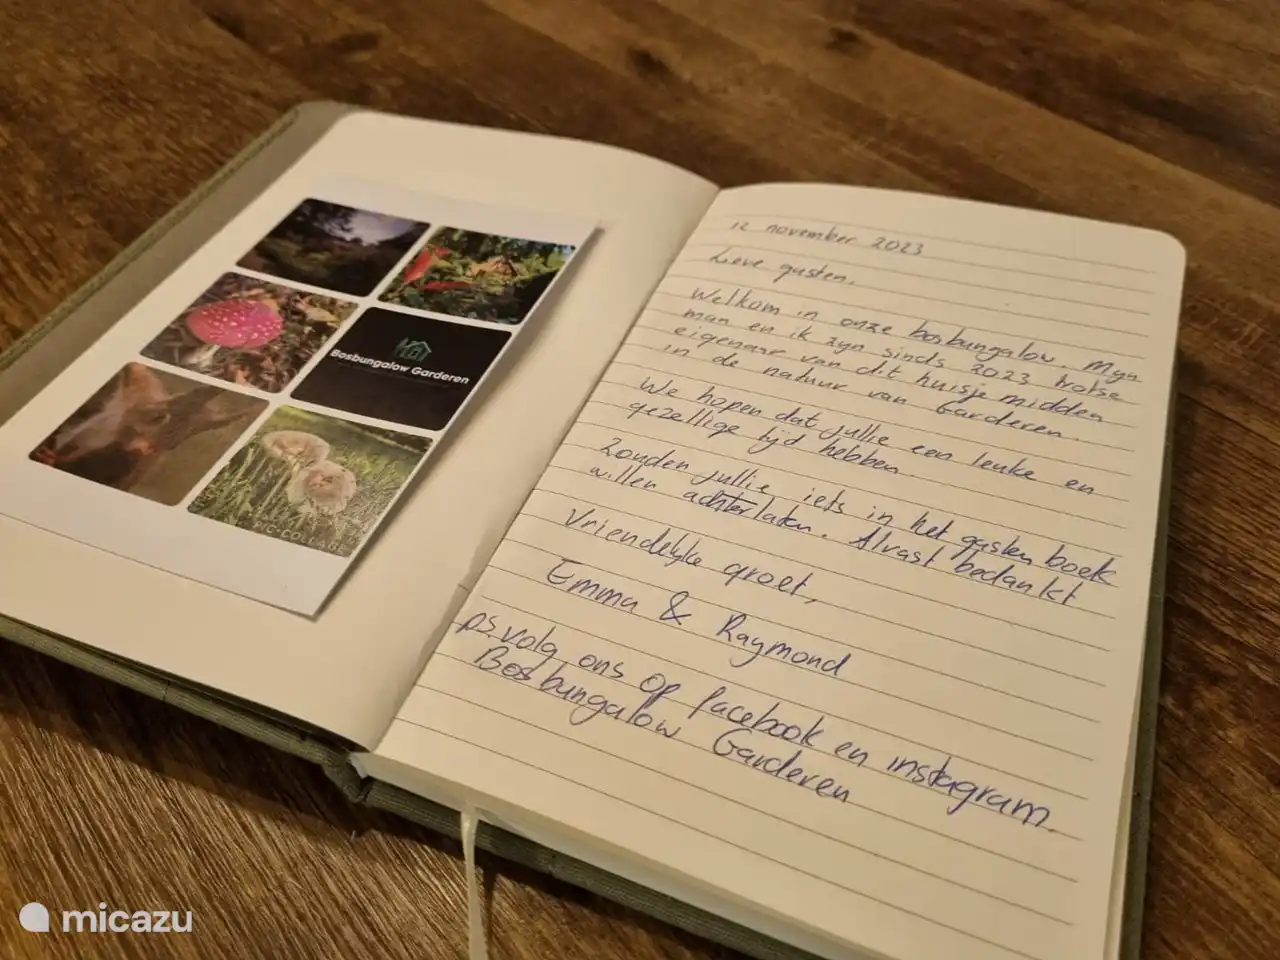 Bosbungalow Garderen
12 november 2023
Lieve gasten,
Welkom in onze bosbungalow. Mijn
man en ik zijn sinds 2023 trotse
eigenaar van dit huisje midden
in de natuur van Garderen.
We hopen dat jullie een leuke en
gezellige tijd hebben
Zouden jullie iets in het gasten boek
willen achterlaten. Alvast bedankt
Vriendelijke groet,
Emma & Raymond
p.s. volg ons op facebook en instagram.
Bosbungalow Garderen
micazu